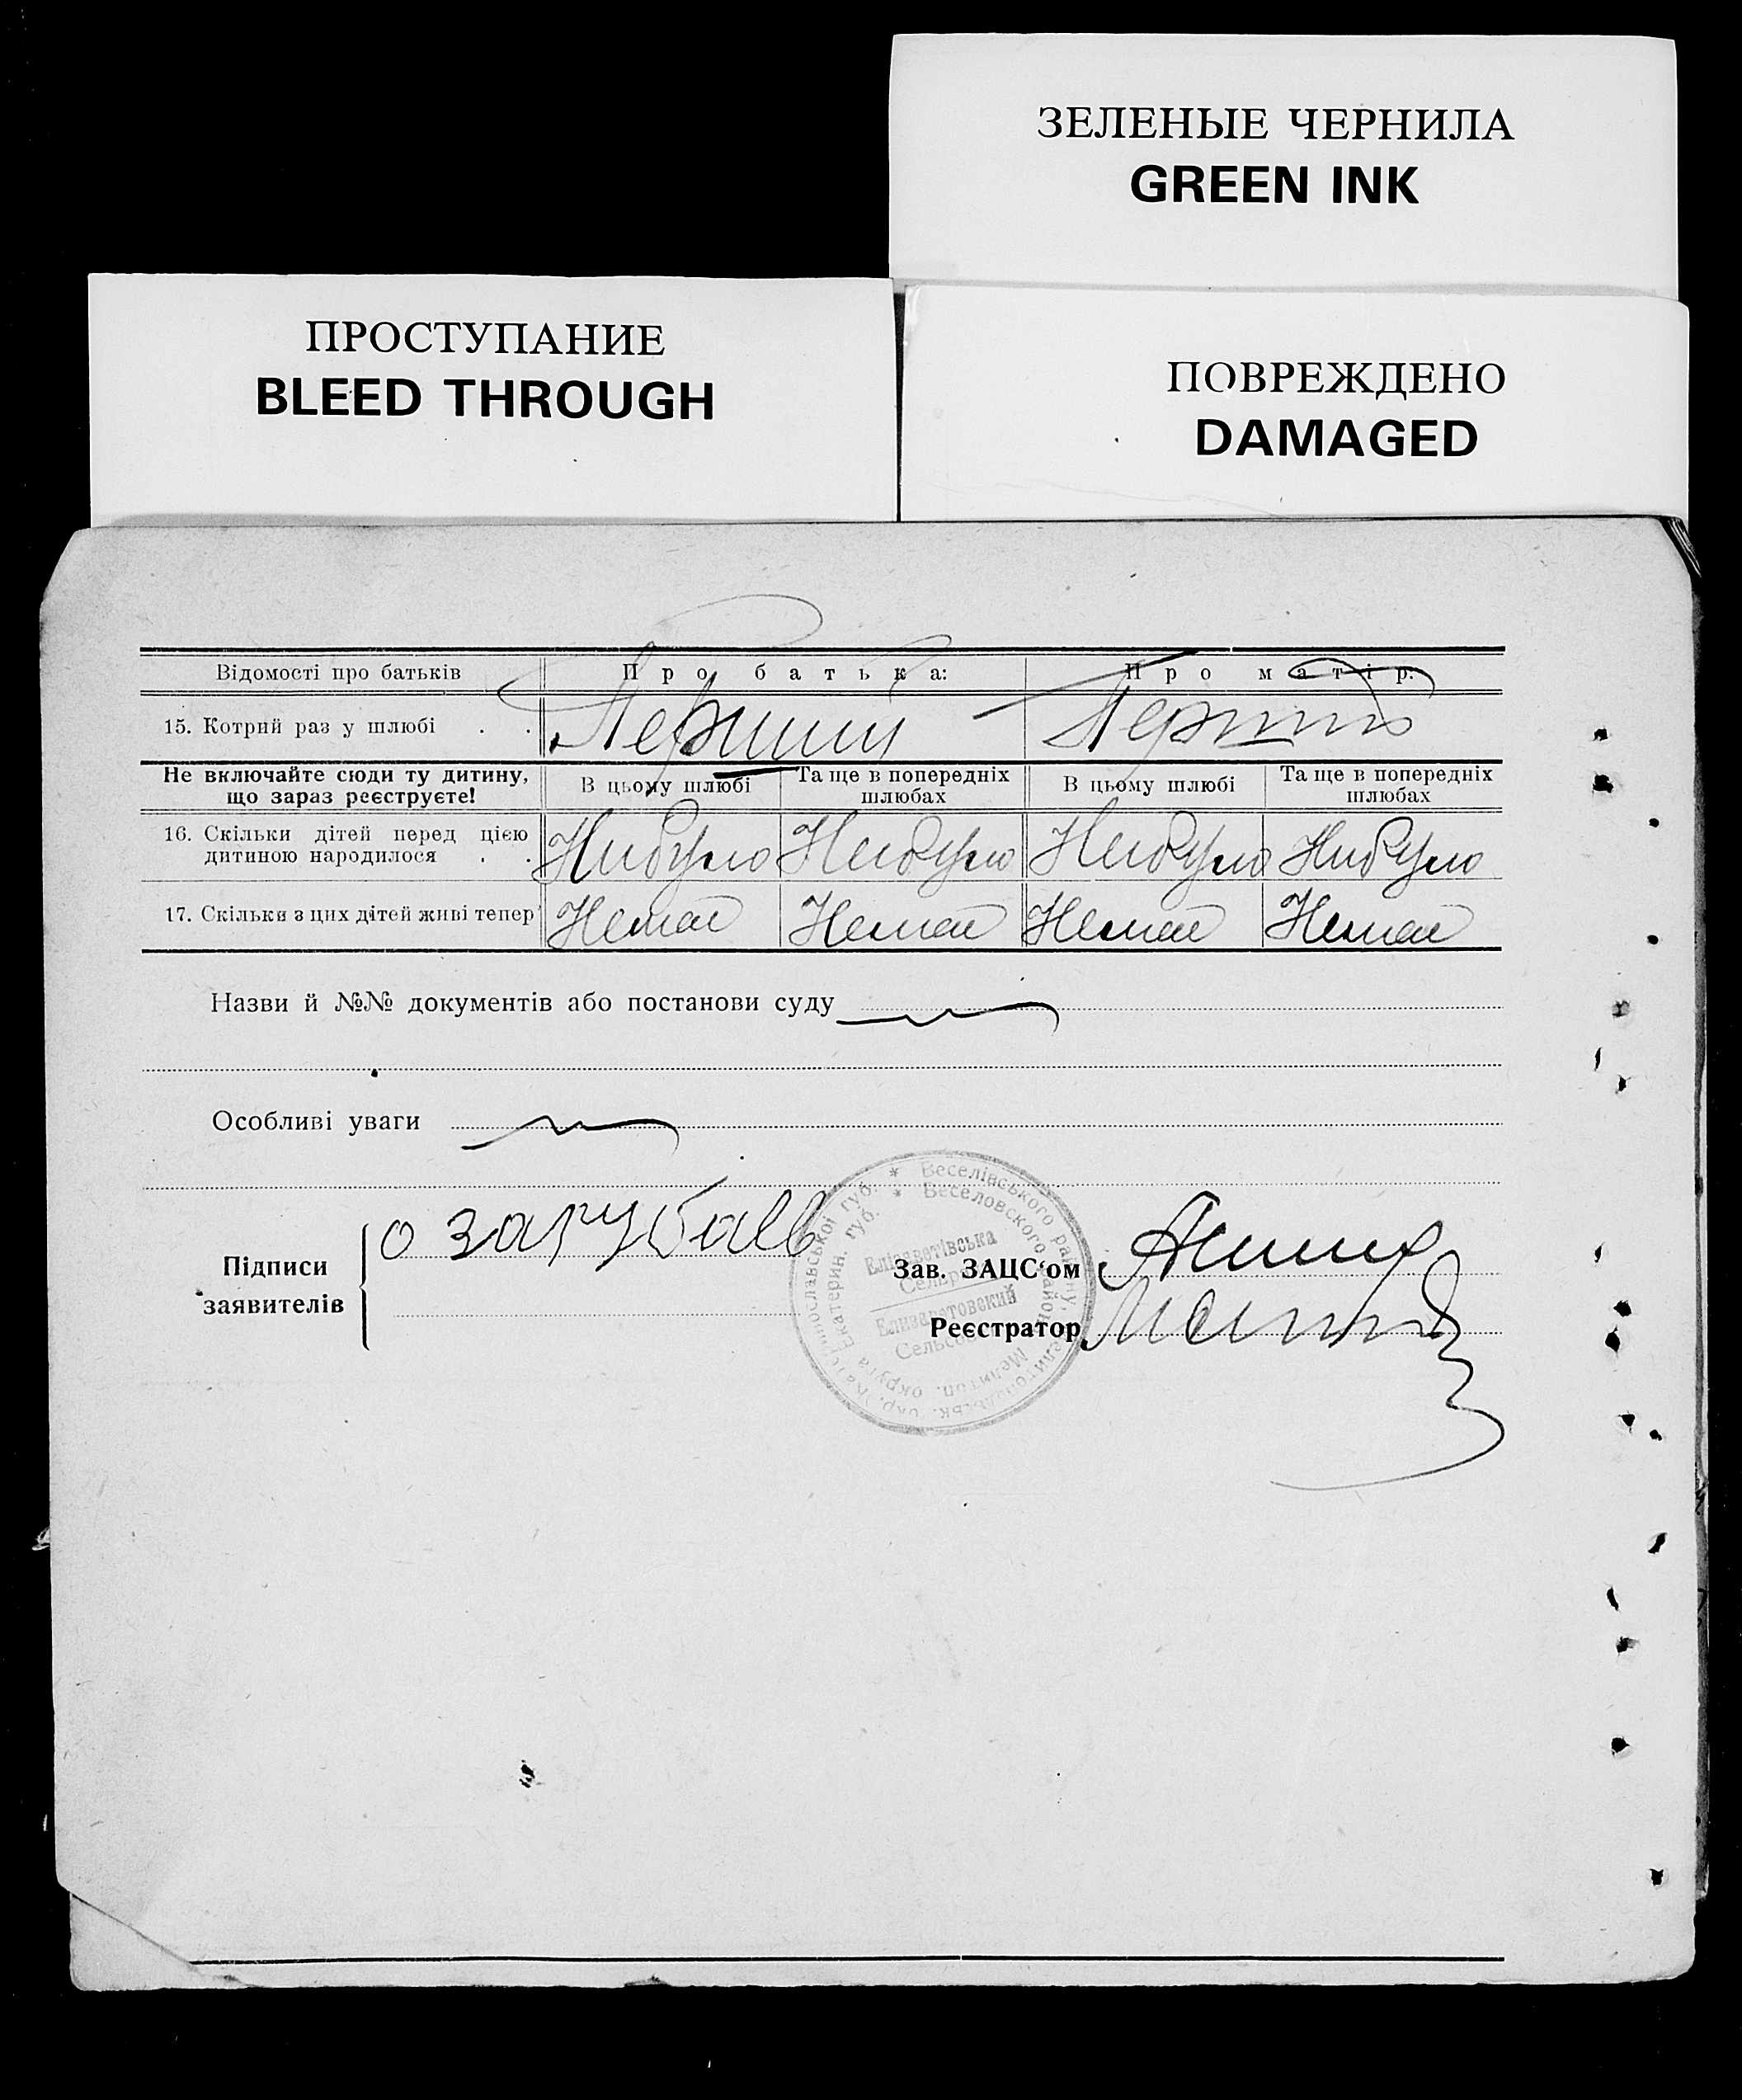 ЗЕЛЕНЫЕ ЧЕРНИЛА
GREEN INK
ПРОСТУПАНИЕ
BLEED THROUGH
ПОВРЕЖДЕНО
DAMAGED
Відомості про батьків Про батька: Про матір:
15. Котрий раз у шлюбі . . Перший Перший
Не включайте сюди ту дитину, що зараз реєструєте! В цьому шлюбі Та ще в попередніх шлюбах В цьому шлюбі Та ще в попередніх шлюбах
16. Скільки дітей перед цією
дитиною народилося . . Нибуло Нибуло Нибуло Нибуло
17. Скільки з цих дітей живі тепер Немає Немає Немає Немає
Назви й №№ документів або постанови суду
Особливі уваги
Підписи
заявителів
о загубаев
Зав. ЗАЦС‘ом
Реєстратор
* Веселівського району, Мелитопільськ. окр. Катеринославської губ.
* Веселовского района Мелитоп. округа Екатерин. губ.
Єлізаветівська
Сельрада
Елизаветовский
Сельсовет